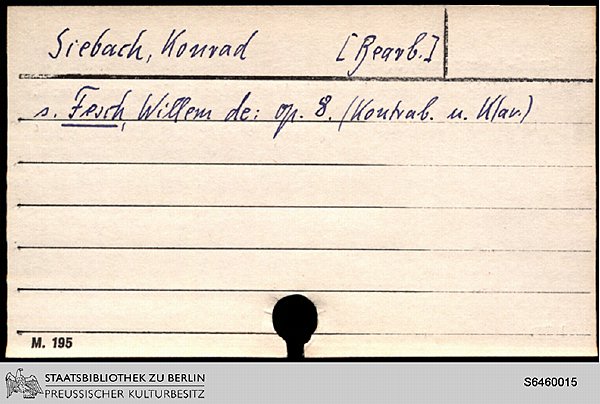 Siebach, Konrad [Bearb.]
s. Fesch, Willem de: op. 8. (Kontrab. u. Klav.)
M. 195
STAATSBIBLIOTHEK ZU BERLIN
PREUSSISCHER KULTURBESITZ
S6460015